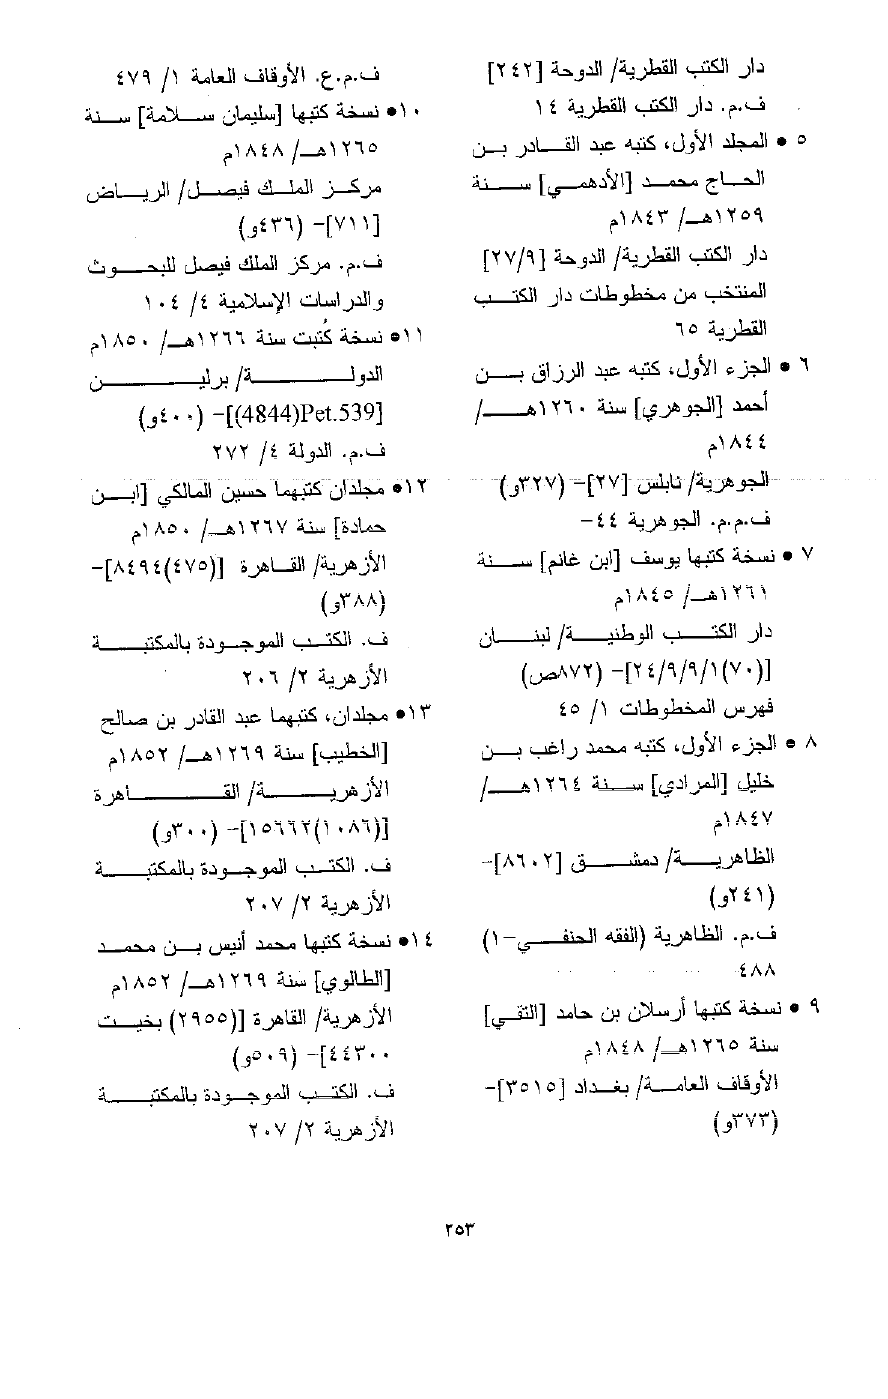 دار الكتب القطرية/ الدوحة [٢٤٢]
ف.م. دار الكتب القطرية ١٤
٥ • المجلد الأول، كتبه عبد القادر بن
الحاج محمد [الأدهمي] سنة
١٢٥٩هـ/ ١٨٤٣م
دار الكتب القطرية/ الدوحة [٢٧/٩]
المنتخب من مخطوطات دار الكتب
القطرية ٦٥
٦ • الجزء الأول، كتبه عبد الرزاق بن
أحمد [الجوهري] سنة ١٢٦٠هـ/
١٨٤٤م
الجوهرية/ نابلس [٢٧]- (٣٢٧و)
ف.م.م. الجوهرية ٤٤-
٧ • نسخة كتبها يوسف [ابن غانم] سنة
١٢٦١هـ/ ١٨٤٥م
دار الكتب الوطنية/ لبنان
[(٧٠)٢٤/٩/٩/١]- (٨٧٢ص)
فهرس المخطوطات ١/ ٤٥
٨ • الجزء الأول، كتبه محمد راغب بن
خليل [المرادي] سنة ١٢٦٤هـ/
١٨٤٧م
الظاهرية/ دمشق [٨٦٠٢]-
(٢٤١و)
ف.م. الظاهرية (الفقه الحنفي-١)
٤٨٨
٩ • نسخة كتبها أرسلان بن حامد [التقي]
سنة ١٢٦٥هـ/ ١٨٤٨م
الأوقاف العامة/ بغداد [٣٥١٥]-
(٣٧٣و)
ف.م.ع. الأوقاف العامة ١/ ٤٧٩
١٠• نسخة كتبها [سليمان سلامة] سنة
١٢٦٥هـ/ ١٨٤٨م
مركز الملك فيصل/ الرياض
[٧١١]- (٤٣٦و)
ف.م. مركز الملك فيصل للبحوث
والدراسات الإسلامية ٤/ ١٠٤
١١• نسخة كُتبت سنة ١٢٦٦هـ/ ١٨٥٠م
الدولة/ برلين
[Pet.539(4844)]- (٤٠٠و)
ف.م. الدولة ٤/ ٢٧٢
١٢• مجلدان كتبهما حسين المالكي [ابن
حمادة] سنة ١٢٦٧هـ/ ١٨٥٠م
الأزهرية/ القاهرة [(٤٧٥)٨٤٩٤]-
(٣٨٨و)
ف. الكتب الموجودة بالمكتبة
الأزهرية ٢/ ٢٠٦
١٣• مجلدان، كتبهما عبد القادر بن صالح
[الخطيب] سنة ١٢٦٩هـ/ ١٨٥٢م
الأزهرية/ القاهرة
[(١٠٨٦)١٥٦٦٢]- (٣٠٠و)
ف. الكتب الموجودة بالمكتبة
الأزهرية ٢/ ٢٠٧
١٤• نسخة كتبها محمد أنيس بن محمد
[الطالوي] سنة ١٢٦٩هـ/ ١٨٥٢م
الأزهرية/ القاهرة [(٢٩٥٥) بخيت
٤٤٣٠٠]- (٥٠٩و)
ف. الكتب الموجودة بالمكتبة
الأزهرية ٢/ ٢٠٧
٢٥٣